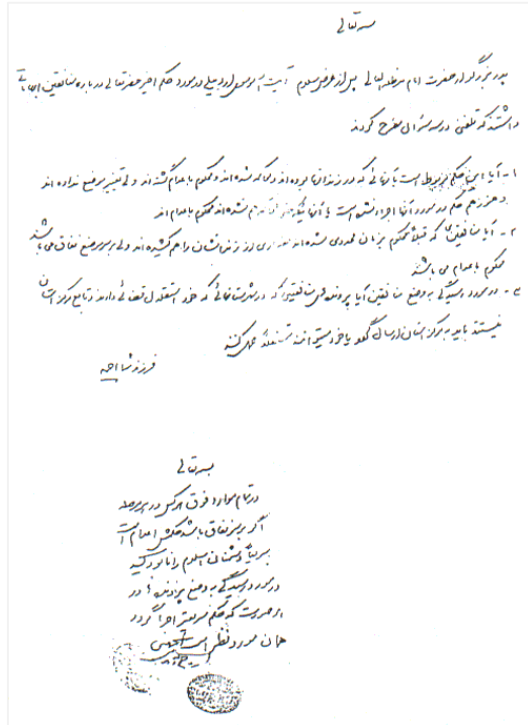 بسمه تعالی
پدر بزرگوار حضرت امام مدظله العالی پس از عرض سلام آیت الله موسوی اردبیلی در مورد حکم اخیر حضرتعالی درباره منافقین ابهاماتی
داشتند که تلفنی در سه سؤال مطرح کردند
۱- آیا این حکم مربوط است به آنهائی که در زندانها بوده اند و محاکمه شده اند و محکوم به اعدام گشته اند ولی تغییر موضع نداده اند
و هنوز هم حکم در مورد آنها اجرا نشده است یا آنهائیکه حتی محاکمه هم نشده اند محکوم به اعدام اند
۲- آیا منافقین که قبلاً محکوم به زندان محدودی شده اند و مقداری از زندانشان را هم کشیده اند ولی بر سر موضع نفاق می باشند
محکوم به اعدام می باشند
۳- در مورد رسیدگی به وضع منافقین آیا پرونده های منافقینی که در شهرستانهائی که خود استقلال قضائی دارند و تابع مرکز استان
نیستند باید به مرکز استان ارسال گردد یا خود میتوانند مستقلاً عمل کنند
فرزند شما احمد
بسمه تعالی
در تمام موارد فوق هر کس در هر مرحله
اگر بر سر نفاق باشد حکمش اعدام است
سریعاً دشمنان اسلام را نابود کنید
در مورد رسیدگی به وضع پرونده ها در
هر صورت که حکم سریعتر اجرا گردد
همان مورد نظر است